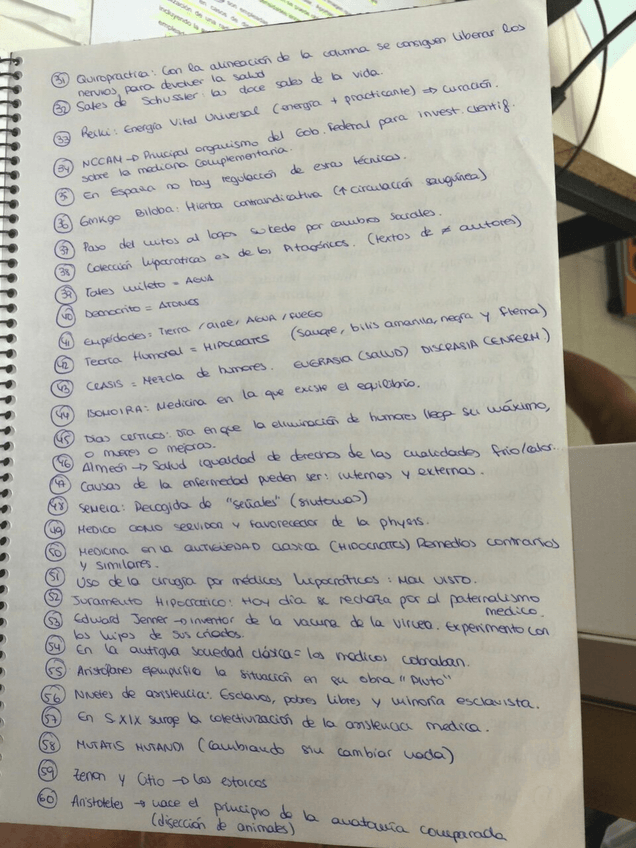 31 Quiropractica: Con la alineación de la columna se consiguen liberar los
nervios, para devolver la salud
32 Sales de Schussler: las doce sales de la vida.
33 Reiki: Energía Vital Universal (energía + practicante) => curación.
34 NCCAM → Principal organismo del Gob. Federal para invest. cientif.
sobre la medicina complementaria.
35 En España no hay regulación de estas técnicas.
36 Ginkgo Biloba: Hierba contraindicativa (↑ circulación sanguínea)
37 Paso del mitos al logos sucede por cambios sociales.
38 Colección hipocraticas es de los Pitagóricos. (textos de ≠ autores)
39 Tales mileto = AGUA
40 Democrito = ATOMOS
41 Empédodes: Tierra / aire / AGUA / FUEGO
42 Teoria Humoral = HIPOCRATES (sangre, bilis amarilla, negra y flema)
43 CRASIS = Mezcla de humores. EUGRASIA (SALUD) DISCRASIA (ENFERM)
44 ISOMOIRA: Medicina en la que existe el equilibrio.
45 Dias criticos: día en que la eliminación de humores llega su máximo,
o mueres o mejoras.
46 Almeón → Salud igualdad de derechos de las cualidades frío/calor.
47 Causas de la enfermedad pueden ser: internas y externas.
48 SEMEIA: Recogida de "señales" (síntomas)
49 MEDICO COMO SERVIDOR y FAVORECEDOR de la physis.
50 MEDICINA en la ANTIGÜEDAD CLASICA (HIPOCRATES) Remedios contrarios
y similares.
51 Uso de la cirugía por médicos hipocráticos: MAL VISTO.
52 Juramento Hipocratico: Hoy día se rechaza por el paternalismo
medico.
53 Edward Jenner → inventor de la vacuna de la viruela. Experimento con
los hijos de sus criados.
54 En la antigua sociedad clásica = los médicos cobraban.
55 Aristófanes ejemplifico la situación en su obra "Pluto"
56 Niveles de asistencia: Esclavos, pobres libres y minoría esclavista.
57 En S. XIX surge la colectivización de la asistencia medica.
58 MUTATIS MUTANDI (Cambiando sin cambiar nada)
59 Zenon y Citio → Los estoicos
60 Aristoteles → nace el principio de la anatomía comparada
(disección de animales)